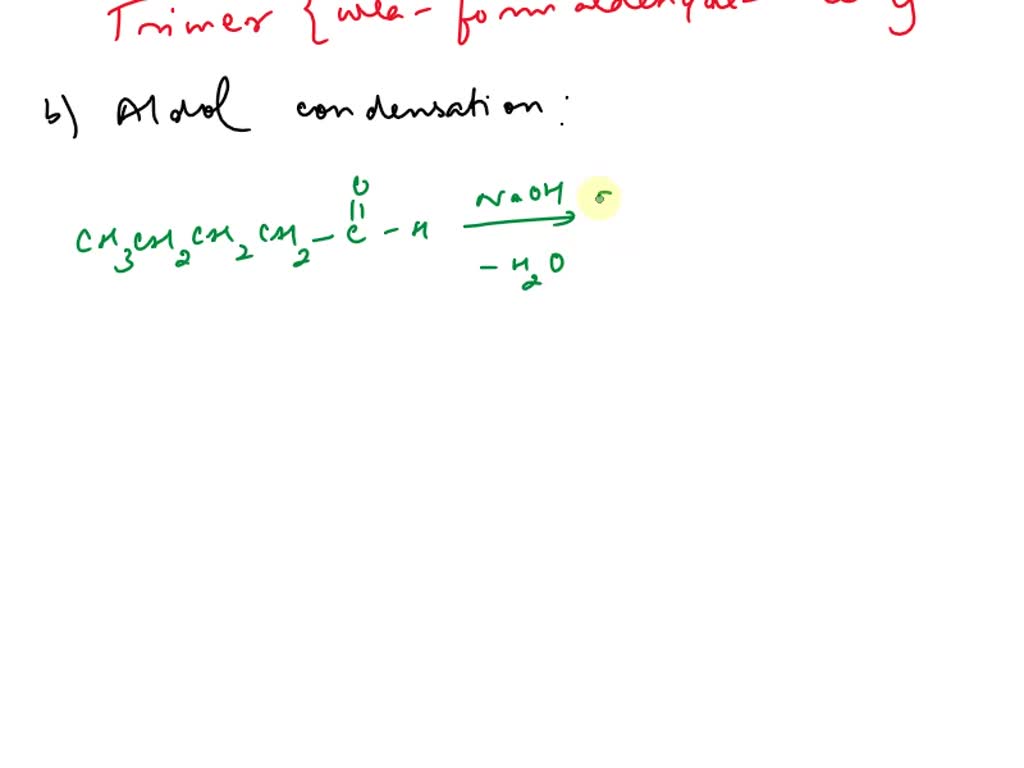 Trimer {urea-formaldehyde
b) Aldol condensation:
O
CH3CH2CH2CH2-C-H NaOH
-H2O